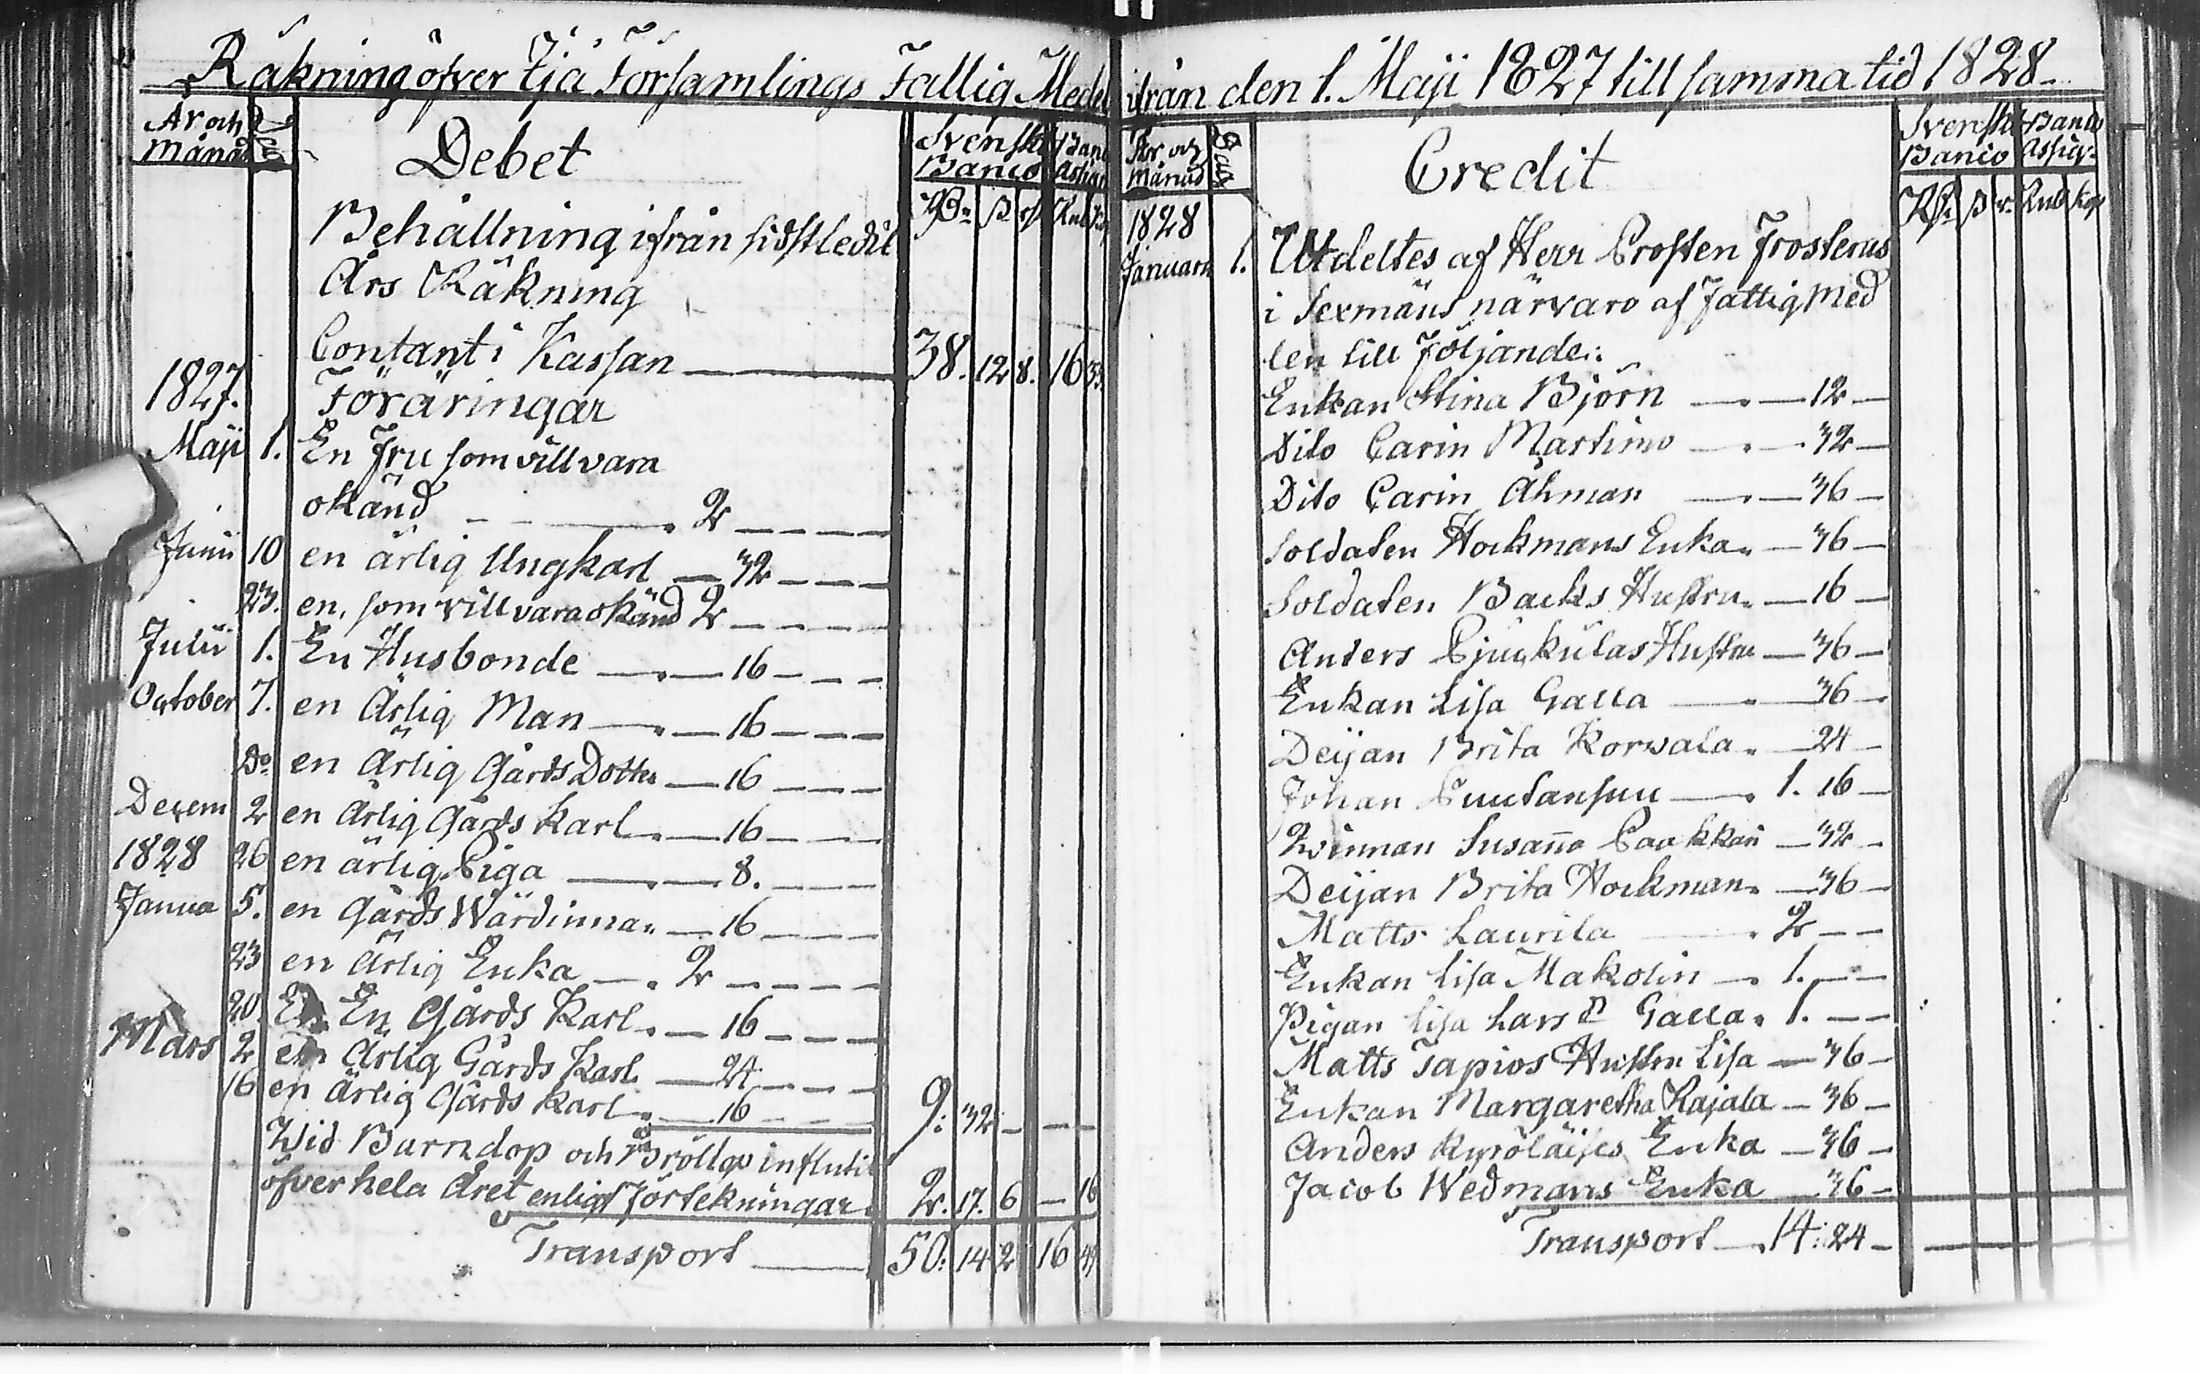 Räkning öfver Ijå Församlings Fattig Medel
År och Månad Dag Debet Svensk Banco Banco Assign
Rd ß rst Rub Kop
Behållning ifrån sidstledit
Års Räkning
Contant i Kassan 38. 12 8. 16 33
1827. Föräringar
Maji 1. En Fru som vill vara
okänd 2 — — —
Junii 10 en ärlig Ungkarl — 32 — — —
23. en, som vill vara okänd 2 — — —
Julii 1. En Husbonde — 16 — — —
October 7. en Ärlig Man — 16 — — —
Do en Ärlig Gårds Dotter — 16 — — —
Decem 2 en Ärlig Gårds Karl — 16 — — —
1828 26 en ärlig Piga — 8. — — —
Janua 5. en Gårds Wärdinna — 16 — — —
23 en Ärlig Enka — 2 — — —
20. En Gårds Karl — 16 — — —
Mars 2 en Ärlig Gårds Karl — 24 — — —
16 en ärlig Gårds Karl — 16 — — 9: 32 — — —
Wid Barndop och Bröllop influtit
öfver hela Året enligt Förtekningar 2. 17. 6 — 16
Transport — 50: 14 2 16 49
ifrån den 1. Maji 1827 till samma tid 1828
År och Månad Dag Credit Svensk Banco Banco Assign
Rd ß r. Rub Kop
1828
Januarii 1. Utdeltes af Herr Prosten Frosterus
i Sexmäns närvaro af Fattig Med
len till Följande:
Enkan Stina Björn — 12 —
Dito Carin Martimo — 32 —
Dito Carin Åhman — 36 —
Soldaten Hockmans Enka — 36 —
Soldaten Backs Hustru — 16 —
Anders Hustru — 36 —
Enkan Lisa Galla — 36 —
Deijan Brita Korwala — 24 —
Johan — 1. 16 —
Qvinnan Susanna Paakkari — 32 —
Deijan Brita Hockman — 36 —
Matts Laurila 2 — —
Enkan Lisa Makolin — 1. — —
Pigan Lisa Lars Dr Galla 1. — —
Matts Tapios Hustru Lisa — 36 —
Enkan Margaretha Rajala — 36 —
Anders Enka — 36 —
Jacob Wedmans Enka — 36 —
Transport — 14: 24 —